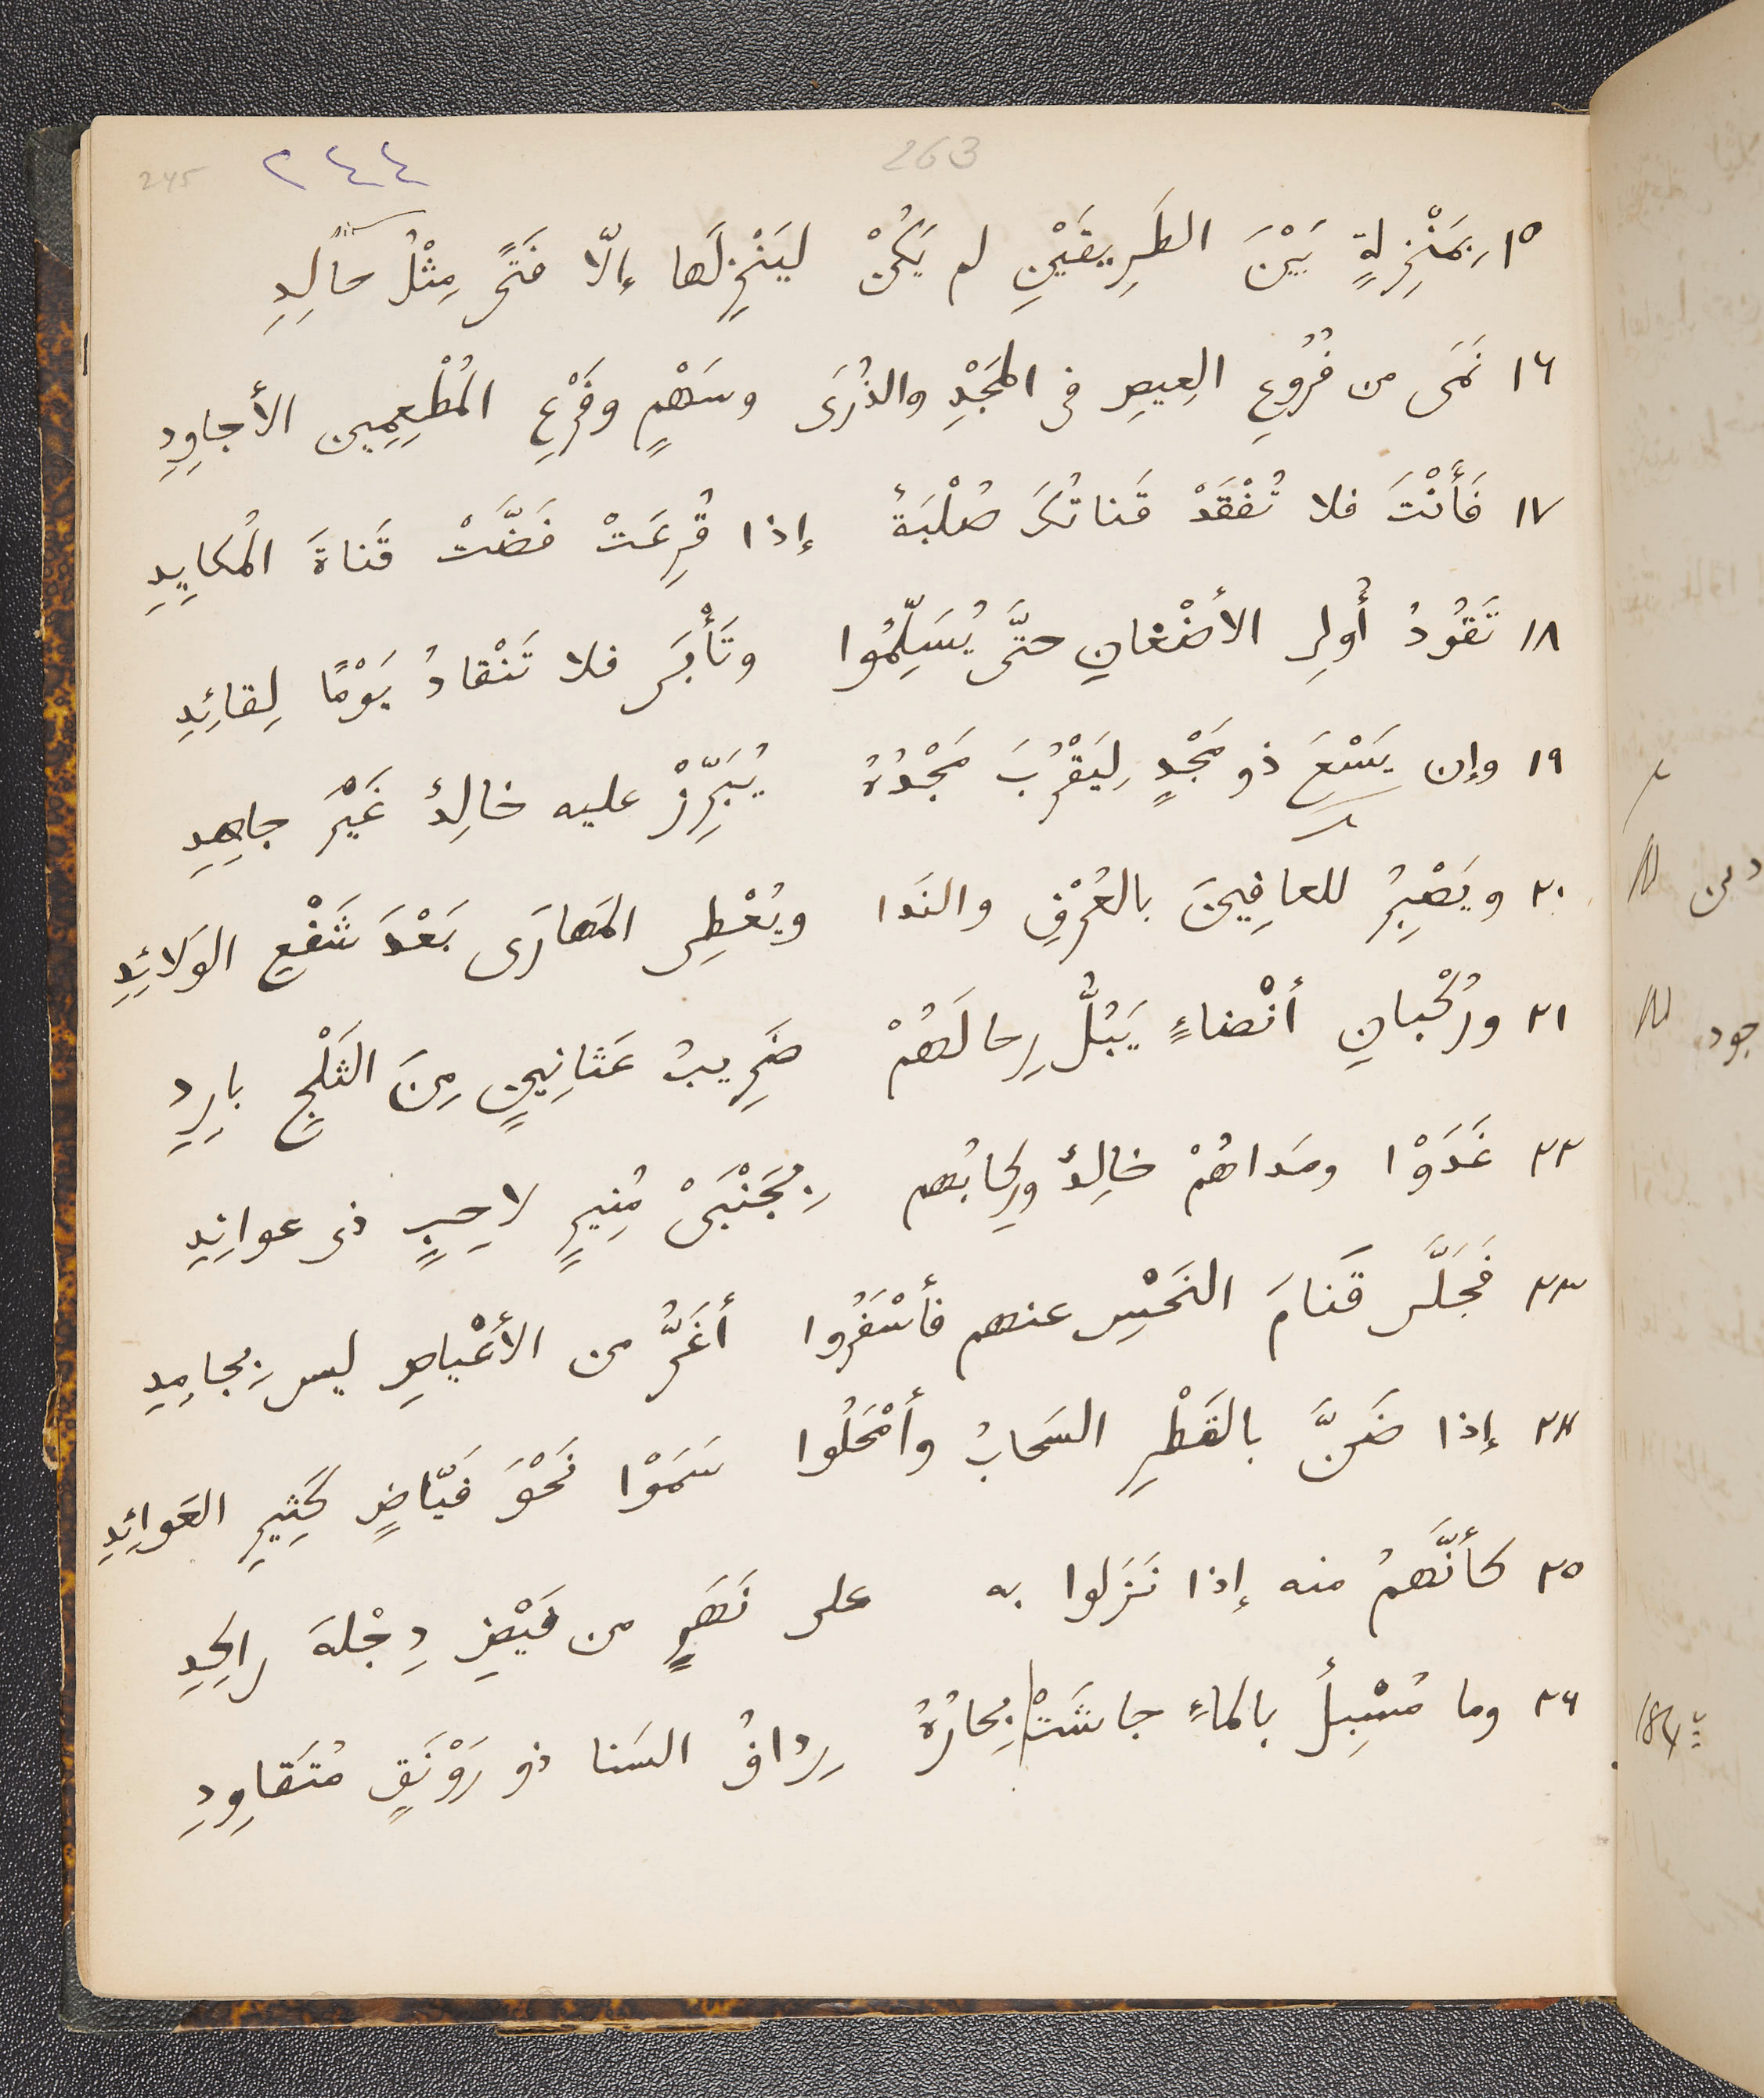 245 ٢٤٤ 263
١٥ بِمَنْزِلةٍ بَيْنَ الطَرِيقَيْنِ لم يَكُنْ لِيَنْزِلَها إلّا فَتًى مِثْلُ خالِدِ
١٦ نَمَى من فُرُوعِ العِيصِ فى المَجْدِ والذُرَى وسَهْمٍ وفَرْعِ المُطْعِمِين الأجاوِدِ
١٧ فَأَنْتَ فلا تُفْقَدْ قَناتُكَ صُلْبَةٌ إذا قُرِعَتْ فَضَّتْ قَناةَ المُكايِدِ
١٨ تَقُودُ أُولِى الأضْغانِ حتَّى يُسَلِّمُوا وتَأْبَى فلا تَنْقادُ يَوْمًا لِقائِدِ
١٩ وإن يَسْعَ ذو مَجْدٍ لِيَقْرُبَ مَجْدُهُ يُبَرِّزْ عليه خالِدٌ غَيْرَ جاهِدِ
٢٠ ويَصْبِرُ للعافِينَ بالعُرْفِ والنَدا ويُعْطِى المَهارَى بَعْدَ شَفْعِ الوَلائِدِ
٢١ ورُكْبانِ أنْضاءٍ يَبُلُّ رِحالَهُمْ ضَرِيبُ عَثانِينٍ مِنَ الثَلْجِ بارِدِ
٢٢ غَدَوْا ومَداهُمْ خالِدٌ ورِكابُهم بِجَنْبَىْ مُنِيرٍ لاحِبٍ ذى عوانِدِ
٢٣ فَجَلَّى قَتامَ النَحْسِ عنهم فأسْفَرُوا أغَرُّ من الأعْياصِ ليس بِجامِدِ
٢٤ إذا ضَنَّ بالقَطْرِ السَحابُ وأمْحَلُوا سَمَوْا نَحْوَ فَيّاضٍ كَثِيرِ العَوائِدِ
٢٥ كأنَّهمُ منه إذا نَزَلوا به على نَهَرٍ من فَيْضِ دِجْلةَ راكِدِ
٢٦ وما مُسْبِلٌ بالماءِ جاشَتْ بِحارُهُ رِدافُ السَنا ذو رَوْنَقٍ مُتَقاوِدِ